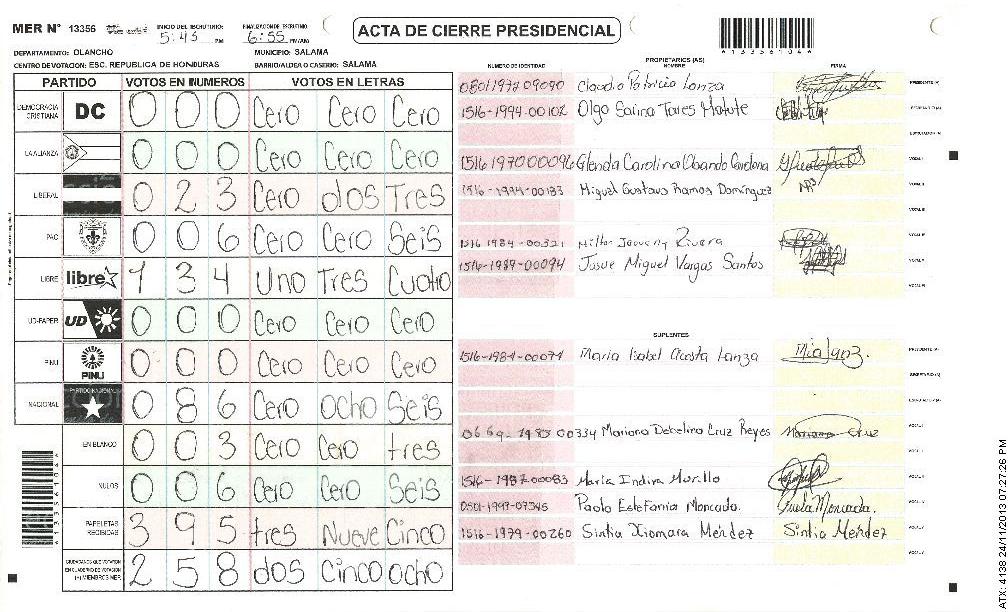 MER N° 13356 INICIO DEL ESCRUTINIO: 5:45 PM FINALIZACION DE ESCRUTINIO: 6:55 PM/AM ACTA DE CIERRE PRESIDENCIAL
DEPARTAMENTO: OLANCHO MUNICIPIO: SALAMA
CENTRO DE VOTACION: ESC. REPUBLICA DE HONDURAS BARRIO/ALDEA O CASERIO: SALAMA
PARTIDO VOTOS EN NUMEROS VOTOS EN LETRAS
DEMOCRACIA CRISTIANA DC 0 0 0 Cero Cero Cero
LA ALIANZA 0 0 0 Cero Cero Cero
LIBERAL 0 2 3 Cero dos Tres
PAC 0 0 6 Cero Cero Seis
LIBRE libre 1 3 4 Uno Tres Cuatro
UD-FAPER UD 0 0 0 Cero Cero Cero
PINU PINU 0 0 0 Cero Cero Cero
NACIONAL 0 8 6 Cero ocho Seis
EN BLANCO 0 0 3 Cero Cero tres
NULOS 0 0 6 Cero Cero Seis
PAPELETAS RECIBIDAS 3 9 5 tres Nueve Cinco
CIUDADANOS QUE VOTARON EN CUADERNO DE VOTACION (+) MIEMBROS MER 2 5 8 dos Cinco ocho
PROPIETARIOS (AS)
NUMERO DE IDENTIDAD NOMBRE FIRMA
0801197209090 Claudia Patricia Lanza PRESIDENTE (A)
1516-1994-00102 Olga Sarina Tares Matute SECRETARIO (A)
ESCRUTADOR (A)
1516197000096 Glenda Carolina Obando Cardona VOCAL I
1516-1994-00183 Miguel Gustavo Ramos Dominguez VOCAL II
VOCAL III
1516 1984-00321 Milton Joveny Rivera VOCAL IV
1516-1989-00094 Josue Miguel Vargas Santos VOCAL V
SUPLENTES
1516-1984-00074 Maria Isabel Acosta Lanza PRESIDENTE (A)
SECRETARIO (A)
ESCRUTADOR (A)
Mariana Debelina Cruz Reyes Mariana Cruz VOCAL I
1516-1987-00083 Maria Indira Murillo
0501-1993-07345 Paola Estefania Moncada. Paola Moncada.
1516-1979-00260 Sintia Xiomara Méndez Sintia Méndez
ATX: 4138 24/11/2013 07:27:26 PM